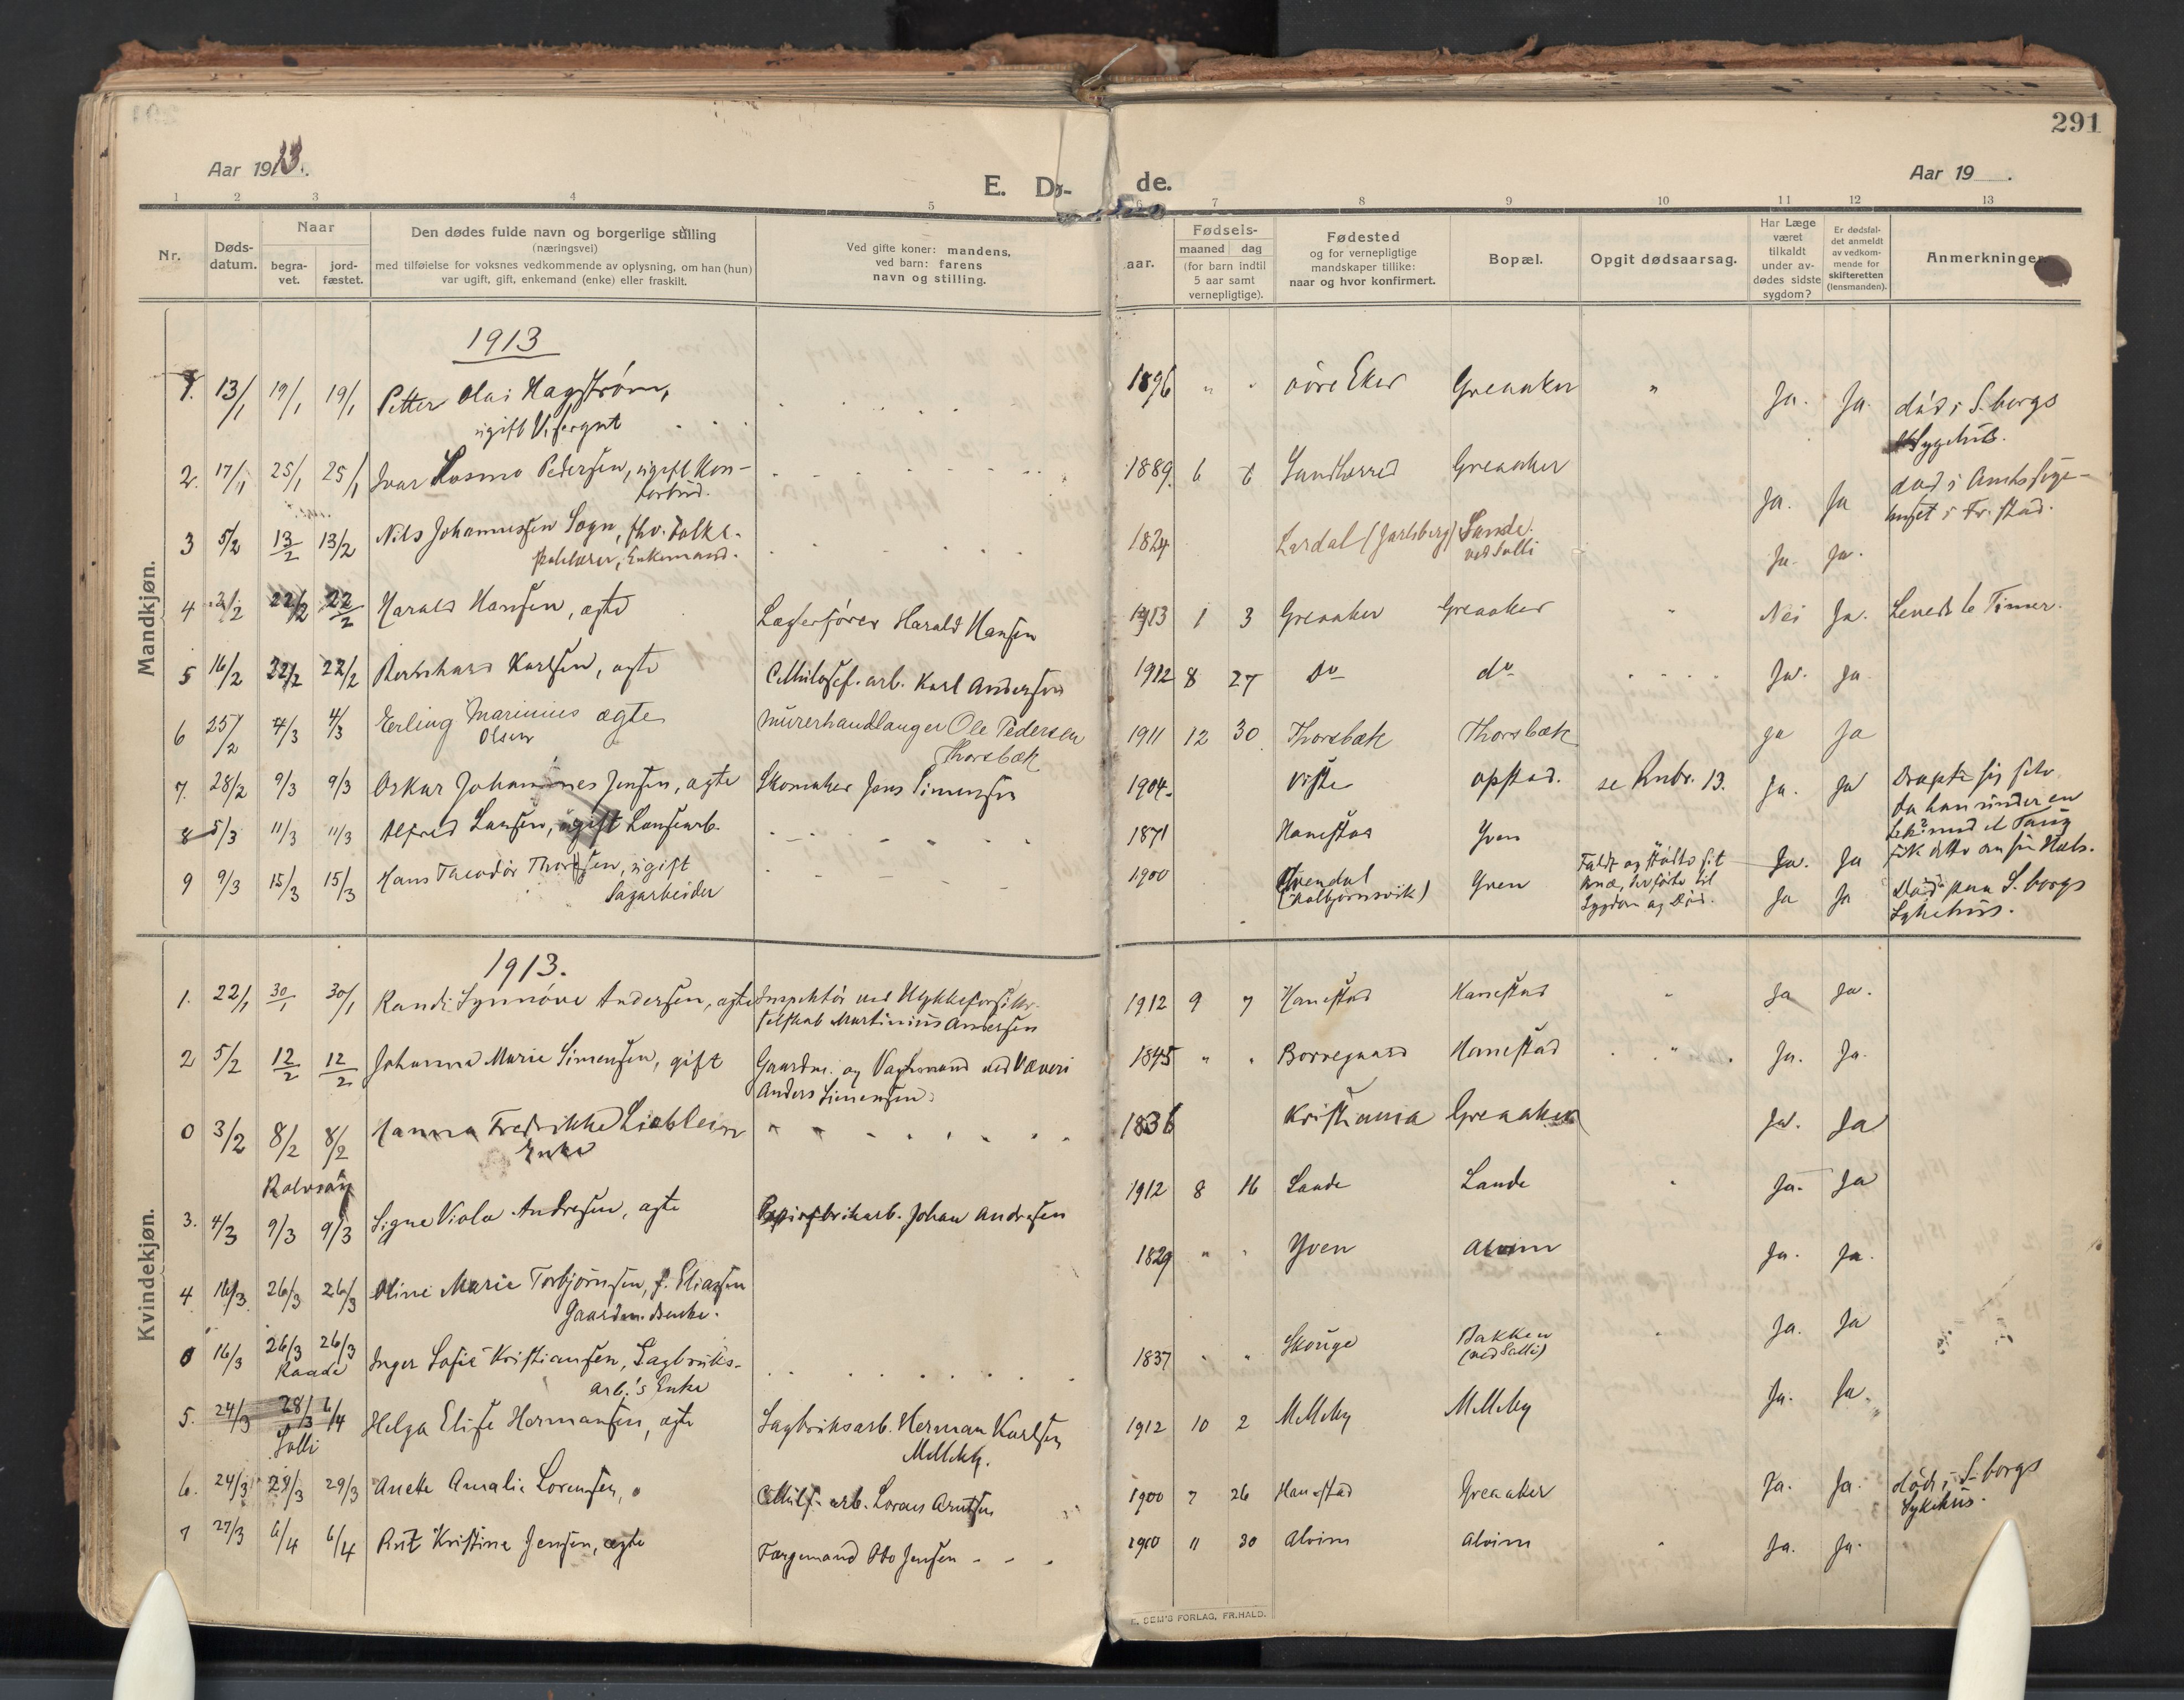 291
Aar 1913.
E. Dø- de.
Aar 19 .
1 2 3 4 5 6 7 8 9 10 11 12 13
Nr.
Døds-
datum.
Naar
begra-
vet.
jord-
fæstet.
Den dødes fulde navn og borgerlige stilling
(næringsvei)
med tilføielse for voksnes vedkommende av oplysning, om han (hun)
var ugift, gift, enkemand (enke) eller fraskilt.
Ved gifte koner: mandens,
ved barn: farens
navn og stilling.
aar.
Fødsels-
maaned dag
(for barn indtil
5 aar samt
vernepligtige).
Fødested
og for vernepligtige
mandskaper tillike:
naar og hvor konfirmert.
Bopæl.
Opgit dødsaarsag.
Har Læge
været
tilkaldt
under av-
dødes sidste
sygdom?
Er dødsfal-
det anmeldt
av vedkom-
mende for
skifteretten
(lensmanden).
Anmerkninger.
Mandkjøn.
1913
1. 13/1 19/1 19/1 Petter Olai Hagstrøm, 1896 " " Greaaker " Ja. Ja. død i S.borgs
ugift Sygehus.
2. 17/1 25/1 25/1 Ivar Kosmo Pedersen, ugift Kon- 1889 6 6 Greaaker Ja. Ja død i Amtssyge-
torbud. huset i Fr.stad.
3 5/2 13/2 13/2 Nils Johannessen Sogn, fhv. Folke- 1824 Lardal (Jarlsberg) Sande Ja. Ja.
skolelærer, Enkemand. ved Solli
4 22/2 22/2 Harald Hansen, ægte Lagerfører Harald Hansen 1913 1 3 Greaaker Greaaker " Nei Ja. Levede 6 Timer.
5 16/2 22/2 22/2 Bernhard Karlsen, ægte Cellulosef. arb. Karl Andersen 1912 8 27 Do do Ja. Ja
6 25/2 4/3 4/3 Erling Marinius ægte Murerhandlanger Ole Pedersen 1911 12 30 Thorsbæk Thorsbæk ja Ja
Olsen Thorsbæk
7. 28/2 9/3 9/3 Oskar Johannes Jensen, ægte Skomaker Jens Simensen 1904. Viste opstad. se Rubr. 13. Ja. Ja Dræpte sig selv
da han under en
Lek med et Taug
fik dette om sin Hals.
8 5/3 11/3 11/3 Alfred Larsen, ugift 1871 Hanestad Yven Ja. Ja
9 9/3 15/3 15/3 Hans Theodor Thorsen, ugift 1900 (Kolbjørnsvik) Yven Faldt og stødte sit
Knæ, der førte til
Sygdom og Død. Ja Ja Død paa S.borgs
Sagarbeider Sykehus.
Kvindekjøn.
1913.
1. 22/1 30/1 30/1 Randi Synnøve Andersen, ægte Inspektør ved Ulykkesforsikr. 1912 9 7 Hanestad Hanestad " Ja Ja.
selskab Martinius Andersen
2 5/2 12/2 12/2 Johanna Marie Simensen, gift Gaardm. og Vagtmand ved Væveri 1845 " " Borregaard Hanestad " Ja. Ja.
Anders Simensen.
0 3/2 8/2 8/2 Hanna Fredrikke Lieblein 1836 Kristiania Greaaker Ja. Ja
Rolvsøy Enke
3. 4/3 9/3 9/3 Signe Viola Andresen, ægte Papirfabrikarb. Johan Andresen 1912 8 16 Lande Lande " Ja. Ja
4 16/3 26/3 26/3 Oline Marie Torbjørnsen, f. Eliassen 1829 " " Yven Alvim Ja. Ja.
Gaardmandsenke.
0 16/3 26/3 26/3 Inger Sofie Kristiansen, Sagbruks- 1837 " " Skouge Bakken Ja. Ja
Raade arb.'s Enke (ved Solli)
5. 24/3 28/3 6/4 Helga Elise Hermansen, ægte Sagbruksarb. Herman Karlsen 1912 10 2 Melleby Melleby Ja. Ja.
Solli Melleby.
6. 24/3 29/3 29/3 Anette Amalie Lorensen, Cellulf. arb. Lorens Arntsen 1900 7 26 Hanestad Greaaker Ja. Ja. død i S.borgs
Sykehus.
7 27/3 6/4 6/4 Rut Kristine Jensen, ægte Færgemand Otto Jensen 1910 11 30 Alvim Alvim Ja. Ja.
E. SEM'S FORLAG, FR.HALD.